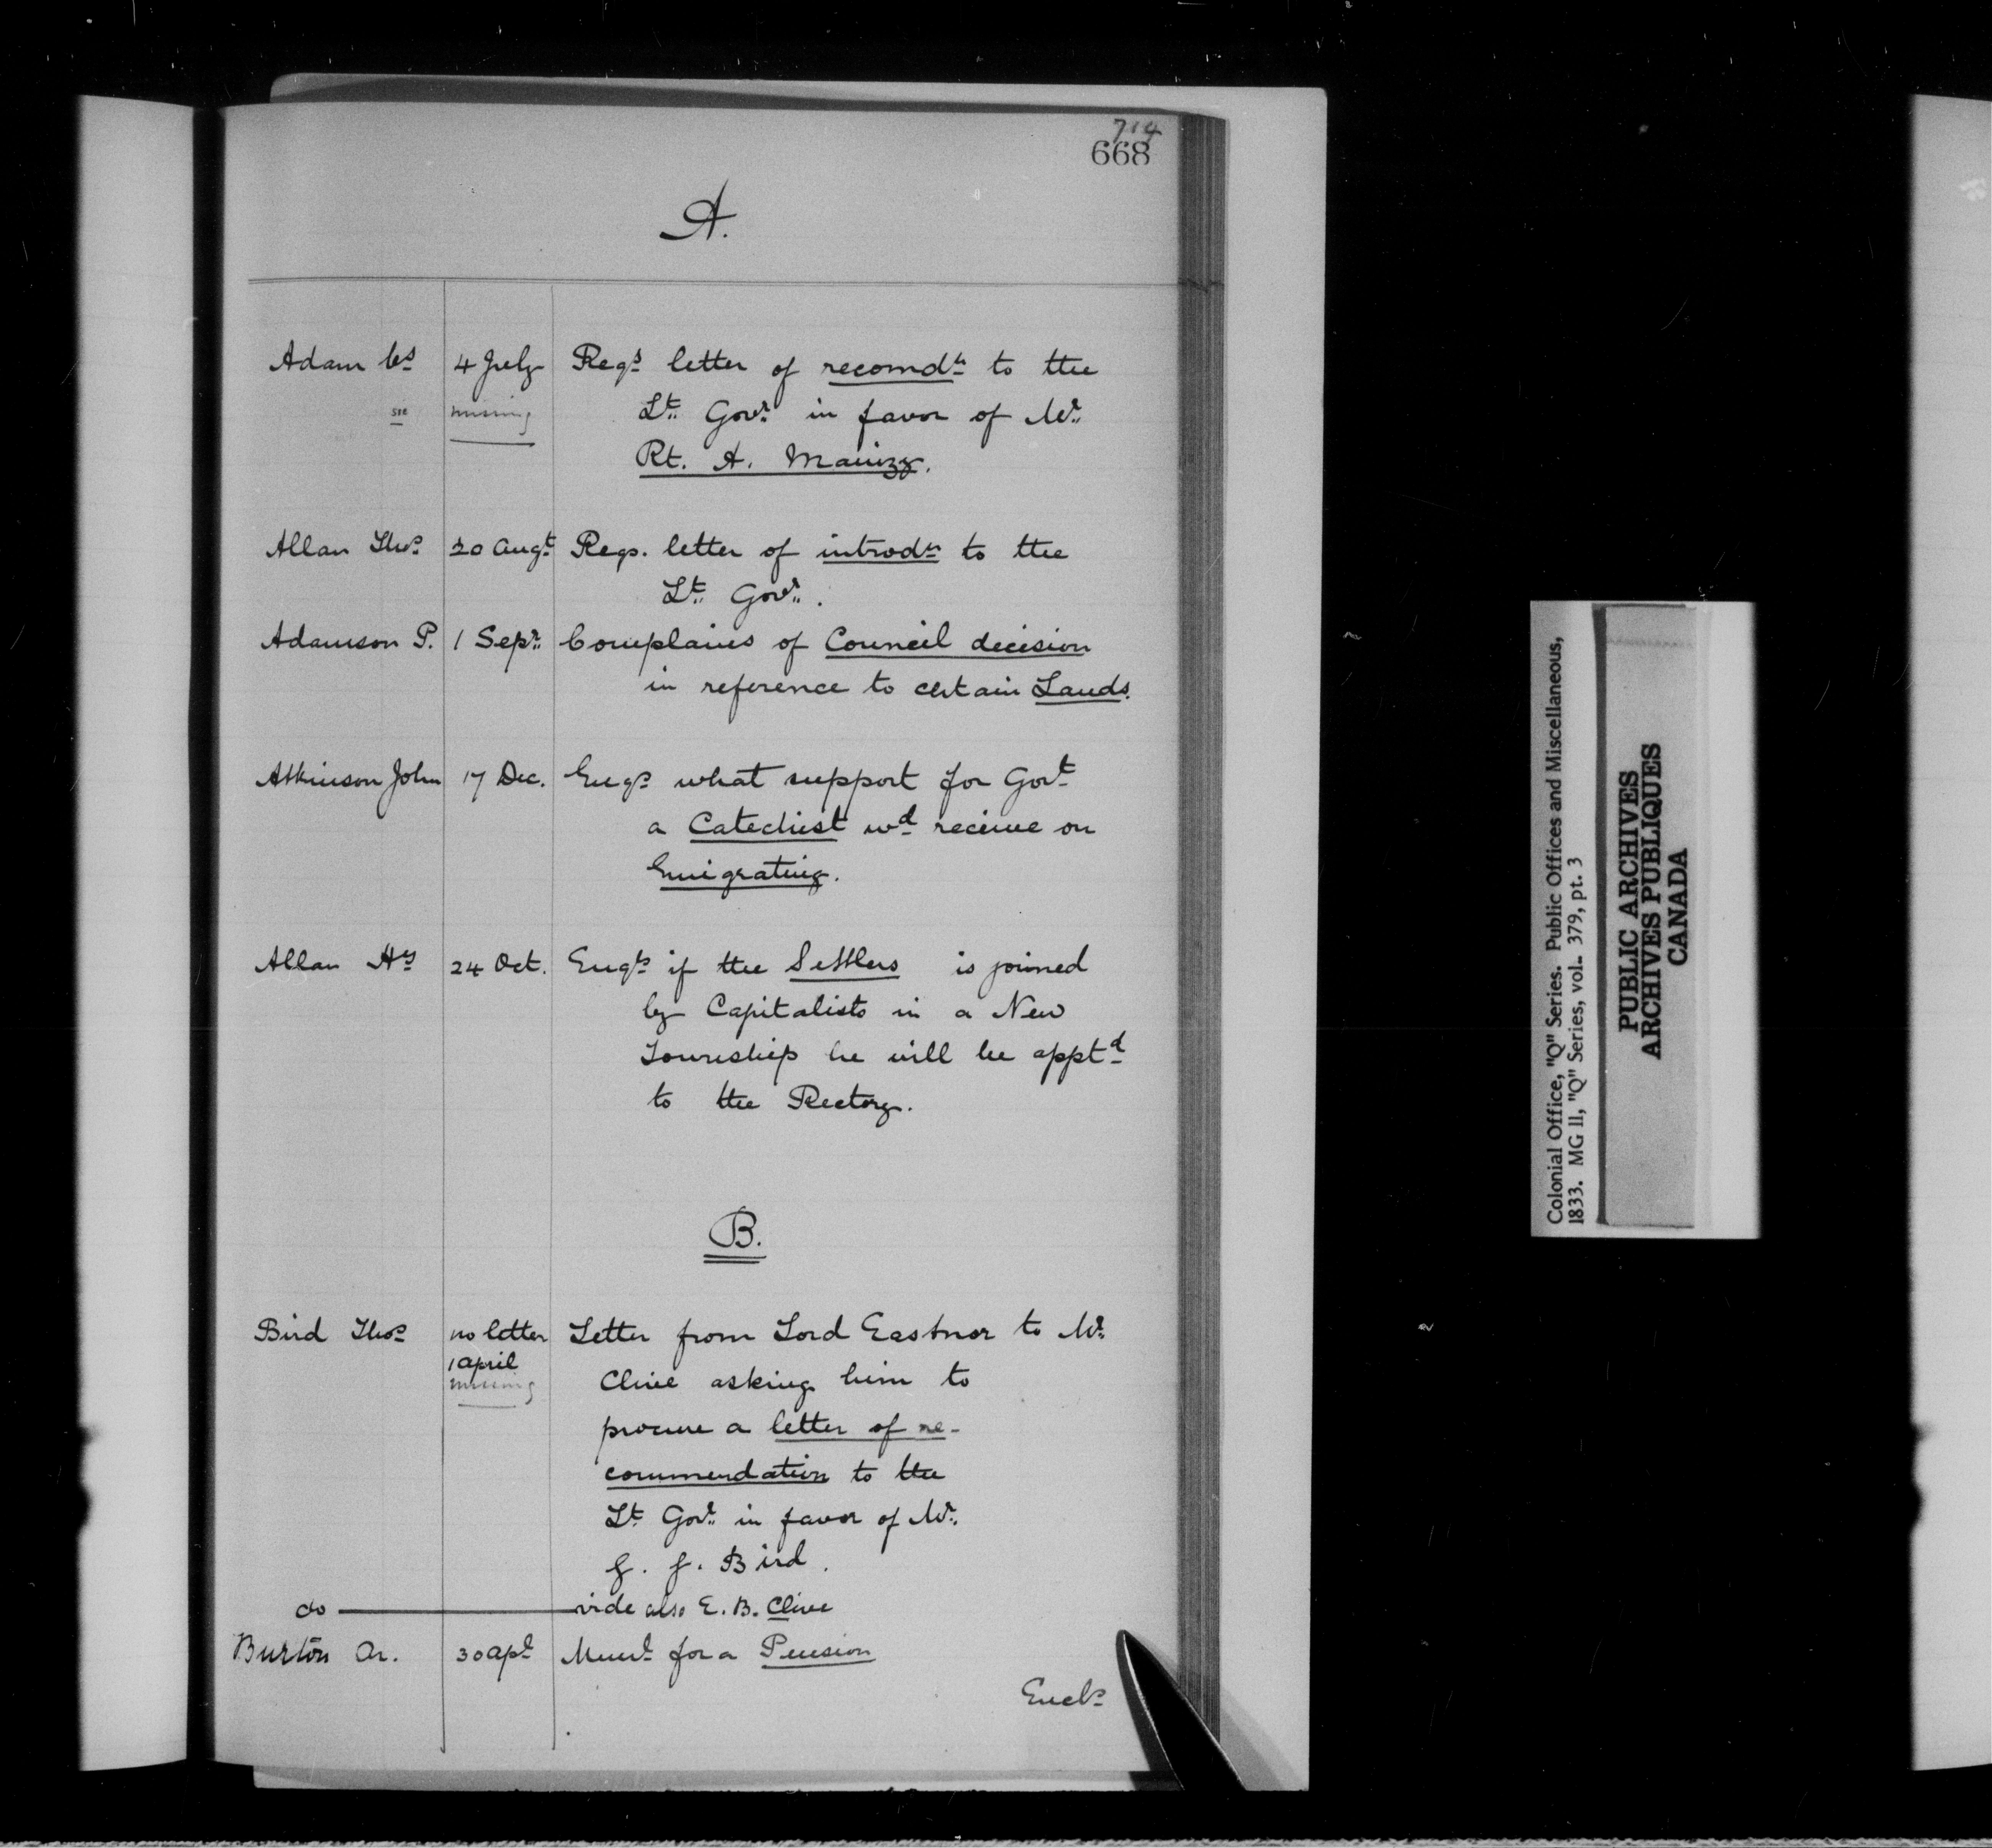 714
668
A.
Adam Cs 4 July Reqs letter of recomdn to the
sic missing Lt. Govr in favor of Mr.
Rt. A.
Allan Thos 20 Augt Reqs. letter of introdn to the
Lt. Govr.
Adamson P. 1 Sepr. Complains of Council decision
in reference to certain Lands.
Atkinson John 17 Dec. Enqs what support for Govt
a Catechist wd receive on
Emigrating.
Allan Hy 24 Oct. Enqrs if the Settlers is joined
by Capitalists in a New
Township he will be apptd
to the Rectory.
B.
Bird Thos no letter Letter from Lord Eastnor to Mr.
1 April
missing Clive asking him to
procure a letter of re-
commendation to the
Lt Govr. in favor of Mr.
J. J. Bird.
do vide also E. B. Clive
Burton Ar. 30 Apl Meml for a Pension
Encls
Colonial Office, "Q" Series. Public Offices and Miscellaneous,
1833. MG 11, "Q" Series, vol. 379, pt. 3
PUBLIC ARCHIVES
ARCHIVES PUBLIQUES
CANADA